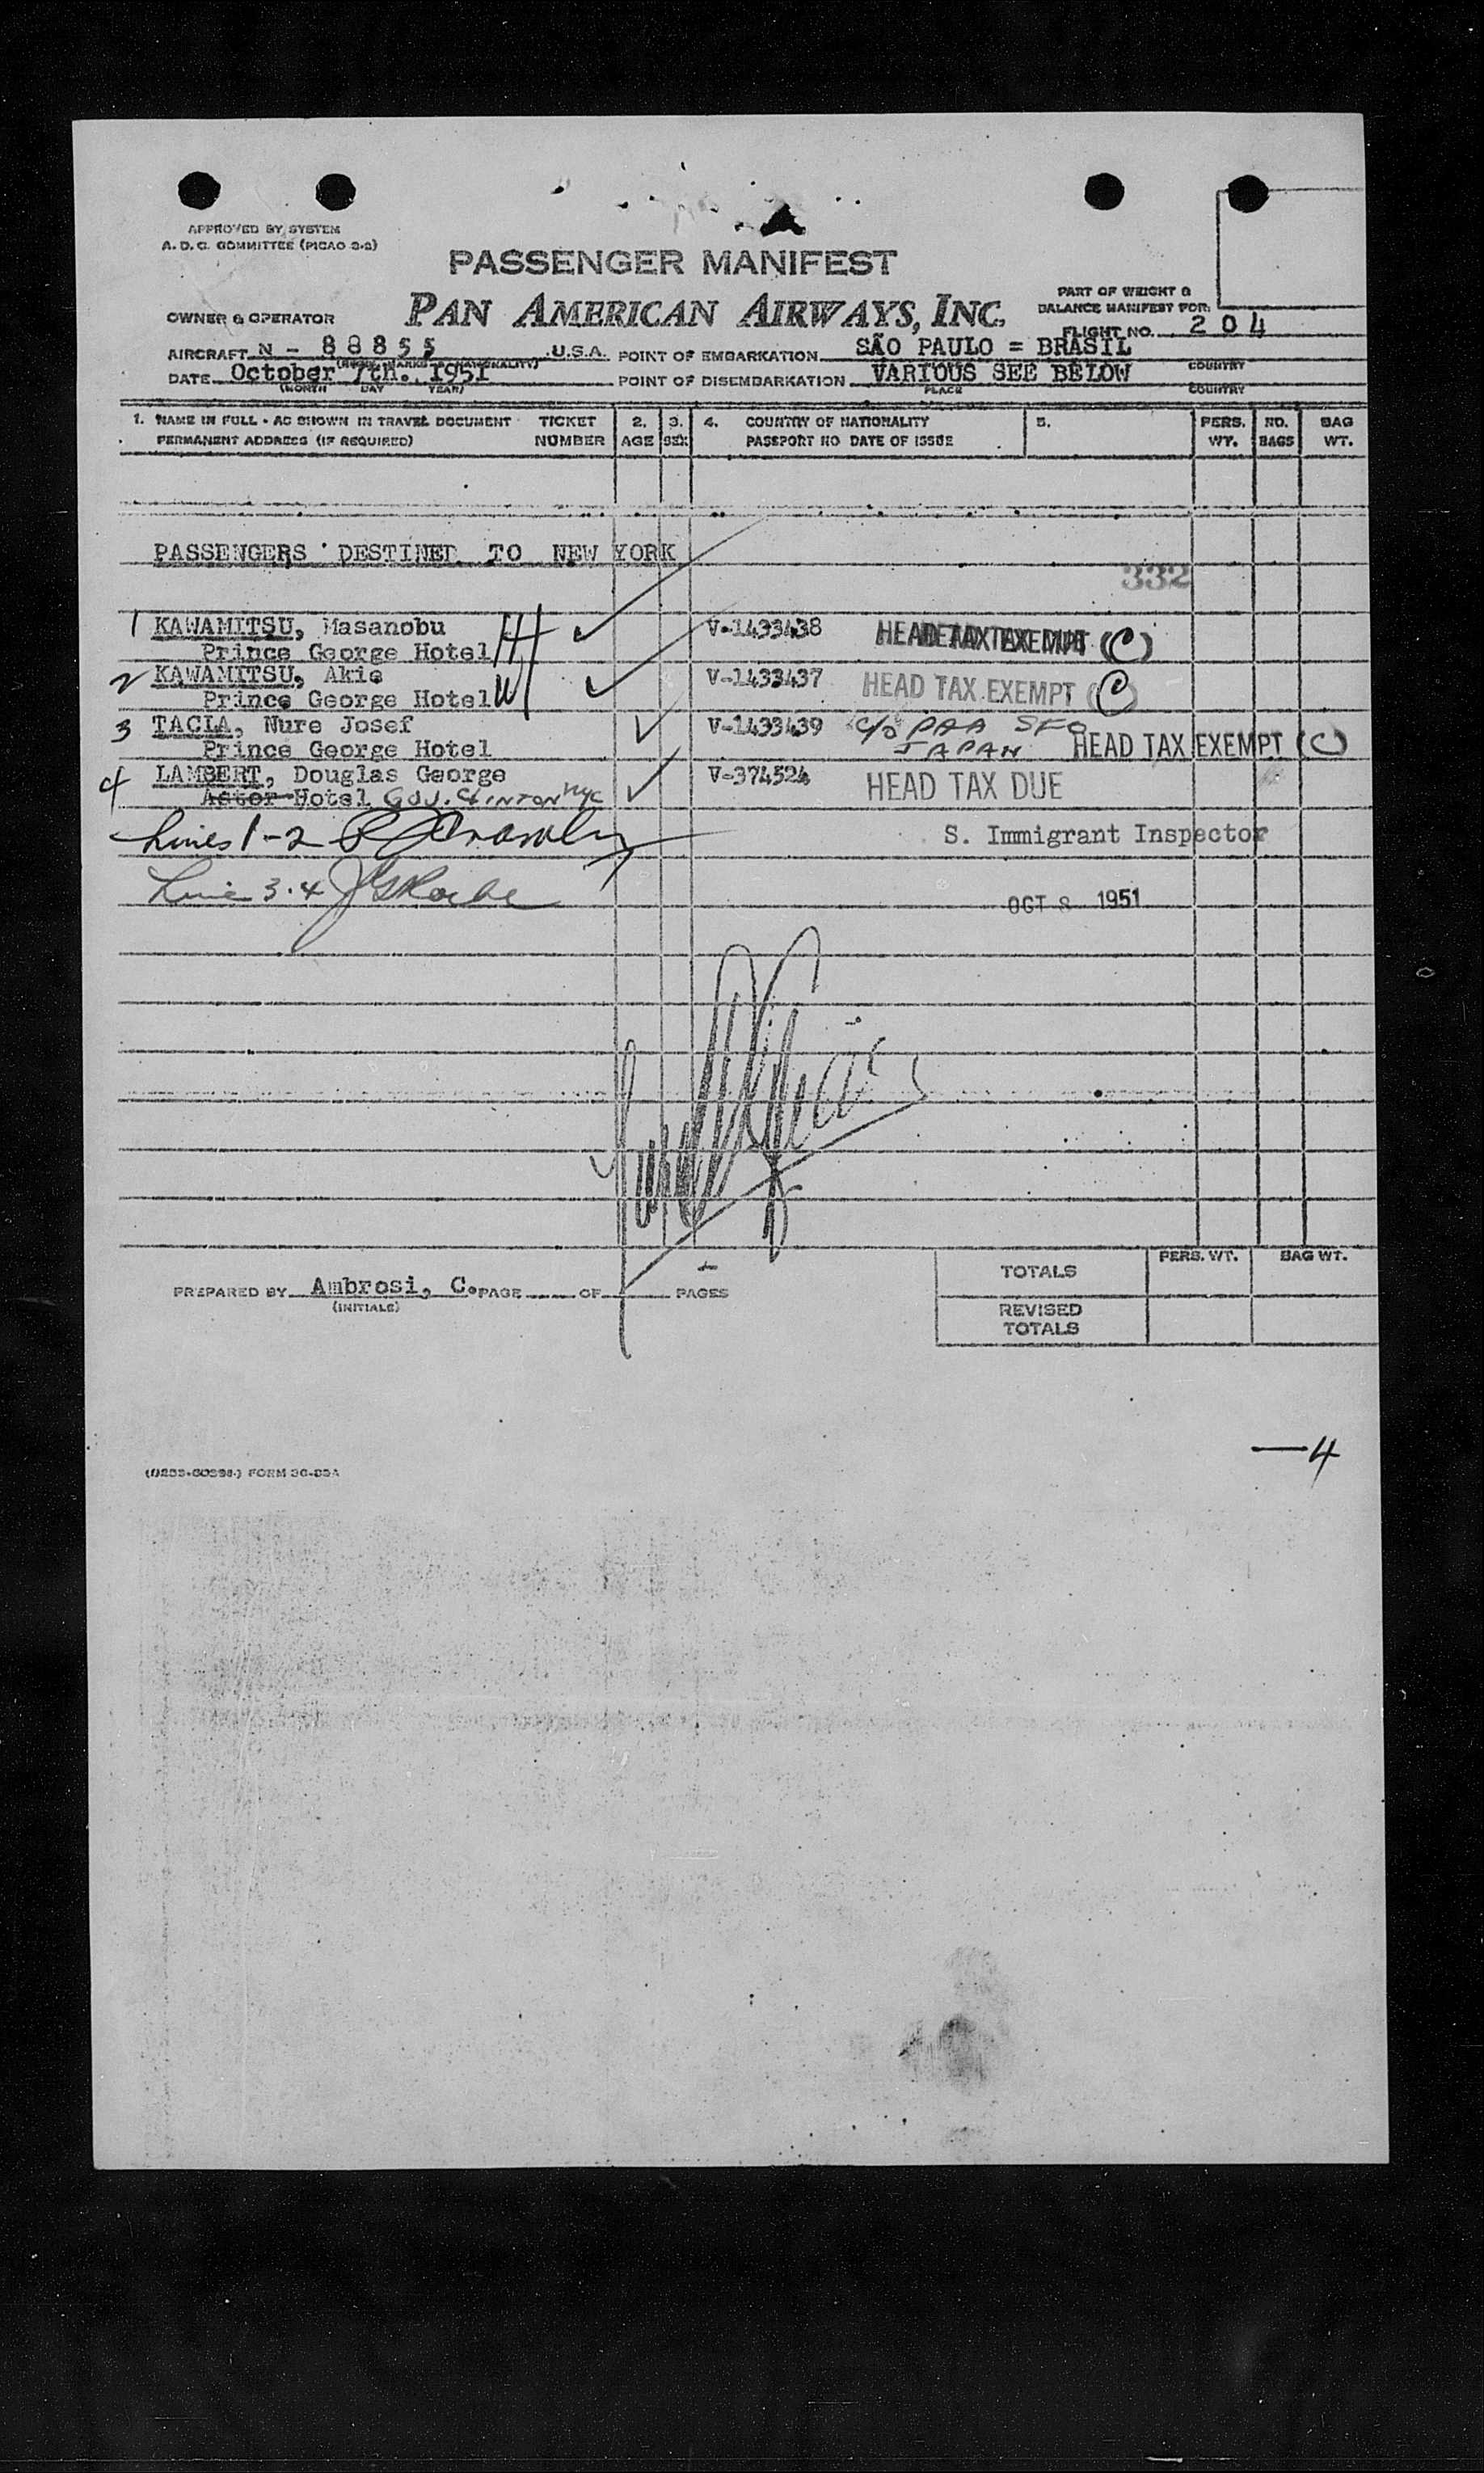 APPROVED BY SYSTEM
A. D. C. COMMITTEE (PICAO 2-2)
PASSENGER MANIFEST
PAN AMERICAN AIRWAYS, INC.
OWNER & OPERATOR
PART OF WEIGHT &
BALANCE MANIFEST FOR:
FLIGHT NO. 204
AIRCRAFT N - 88855 U.S.A. POINT OF EMBARKATION SÃO PAULO = BRASIL
COUNTRY
DATE October 7th. 1951 POINT OF DISEMBARKATION VARIOUS SEE BELOW
(MONTH DAY YEAR) PLACE COUNTRY
1. NAME IN FULL - AS SHOWN IN TRAVEL DOCUMENT TICKET 2. 3. 4. COUNTRY OF NATIONALITY 5. PERS. NO. BAG
PERMANENT ADDRESS (IF REQUIRED) NUMBER AGE SEX PASSPORT NO DATE OF ISSUE WT. BAGS WT.
PASSENGERS DESTINED TO NEW YORK
332
1 KAWAMITSU, Masanobu H V-1433438 HEAD TAX EXEMPT (C)
Prince George Hotel
2 KAWAMITSU, Akie W V-1433437 HEAD TAX EXEMPT (C)
Prince George Hotel
3 TACLA, Nure Josef V-1433439 C/O PAA SFO
Prince George Hotel JAPAN HEAD TAX EXEMPT (C)
4 LAMBERT, Douglas George V-374524 HEAD TAX DUE
Astor Hotel GOV. CLINTON NYC
Lines 1-2
S. Immigrant Inspector
Line 3.4
OCT 8 1951
PREPARED BY Ambrosi, C. PAGE OF PAGES
(INITIALS)
PERS. WT. BAG WT.
TOTALS
REVISED
TOTALS
—4